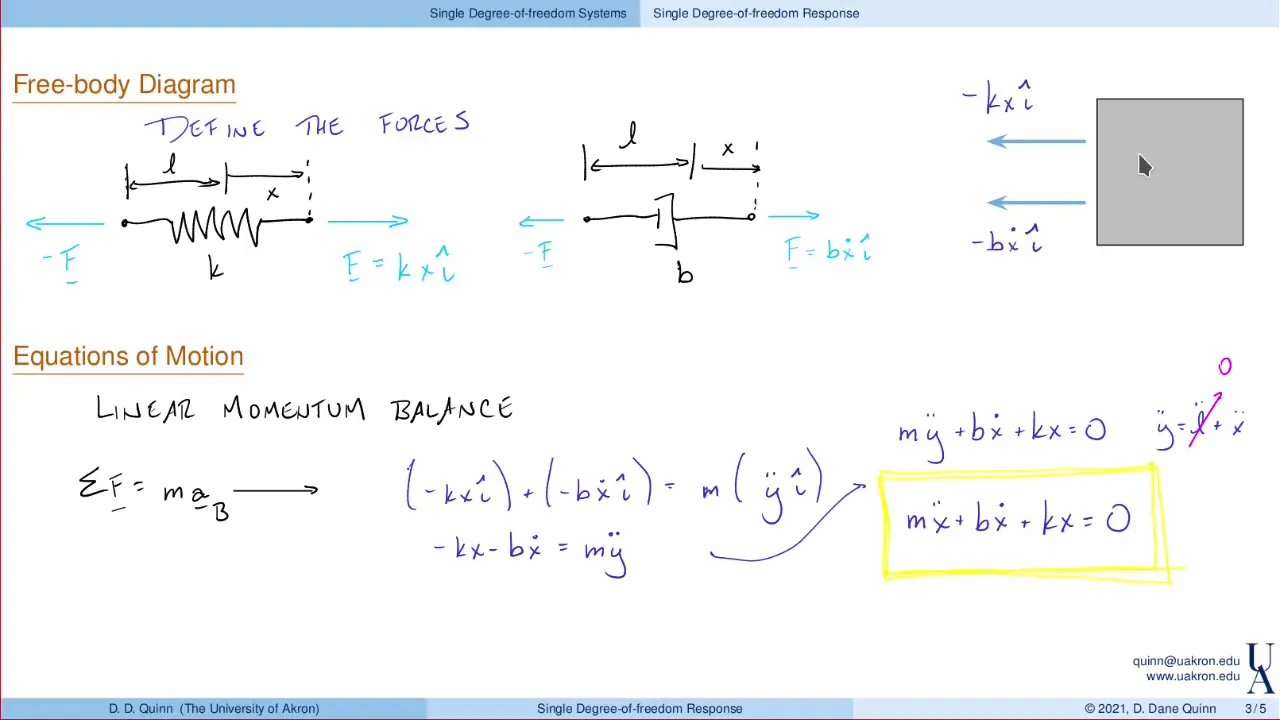 Single Degree-of-freedom Systems Single Degree-of-freedom Response
Free-body Diagram
DEFINE THE FORCES
l x
k
-F F = kxî
l x
b
-F F = bẋî
-kxî
-bẋî
Equations of Motion
LINEAR MOMENTUM BALANCE
ΣF = ma_B
(-kxî) + (-bẋî) = m(ÿî)
-kx - bẋ = mÿ
0
mÿ + bẋ + kx = 0 ÿ = l̈ + ẍ
mẍ + bẋ + kx = 0
quinn@uakron.edu
www.uakron.edu
UA
D. D. Quinn (The University of Akron) Single Degree-of-freedom Response © 2021, D. Dane Quinn 3 / 5